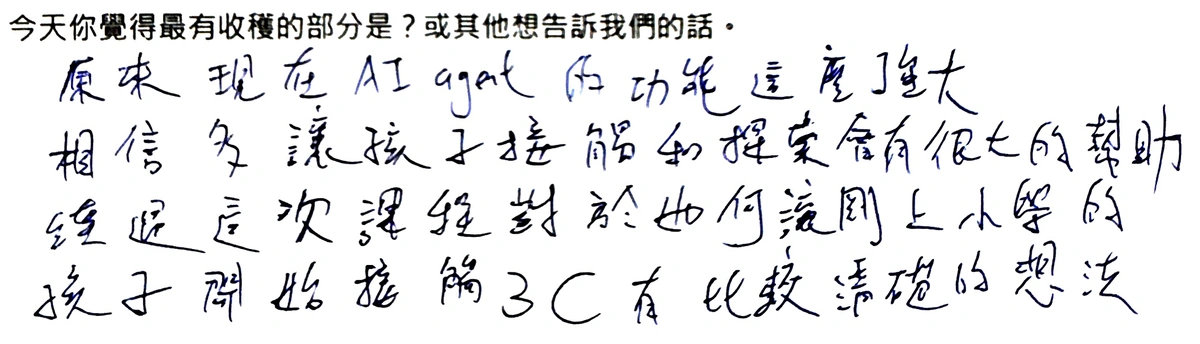 今天你覺得最有收穫的部分是？或其他想告訴我們的話。
原來現在AI agent的功能這麼強大
相信多讓孩子接觸和探索會有很大的幫助
經過這次課程對於如何讓剛上小學的
孩子開始接觸3C有比較清礎的想法